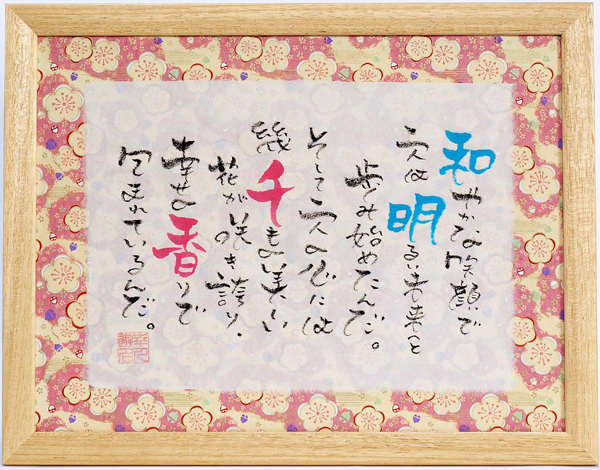 和やかな笑顔で
二人は明るい未来へと
歩み始めたんだ。
そして二人の心には
幾千もの美しい
花が咲き誇り、
幸せの香りで
包まれているんだ。